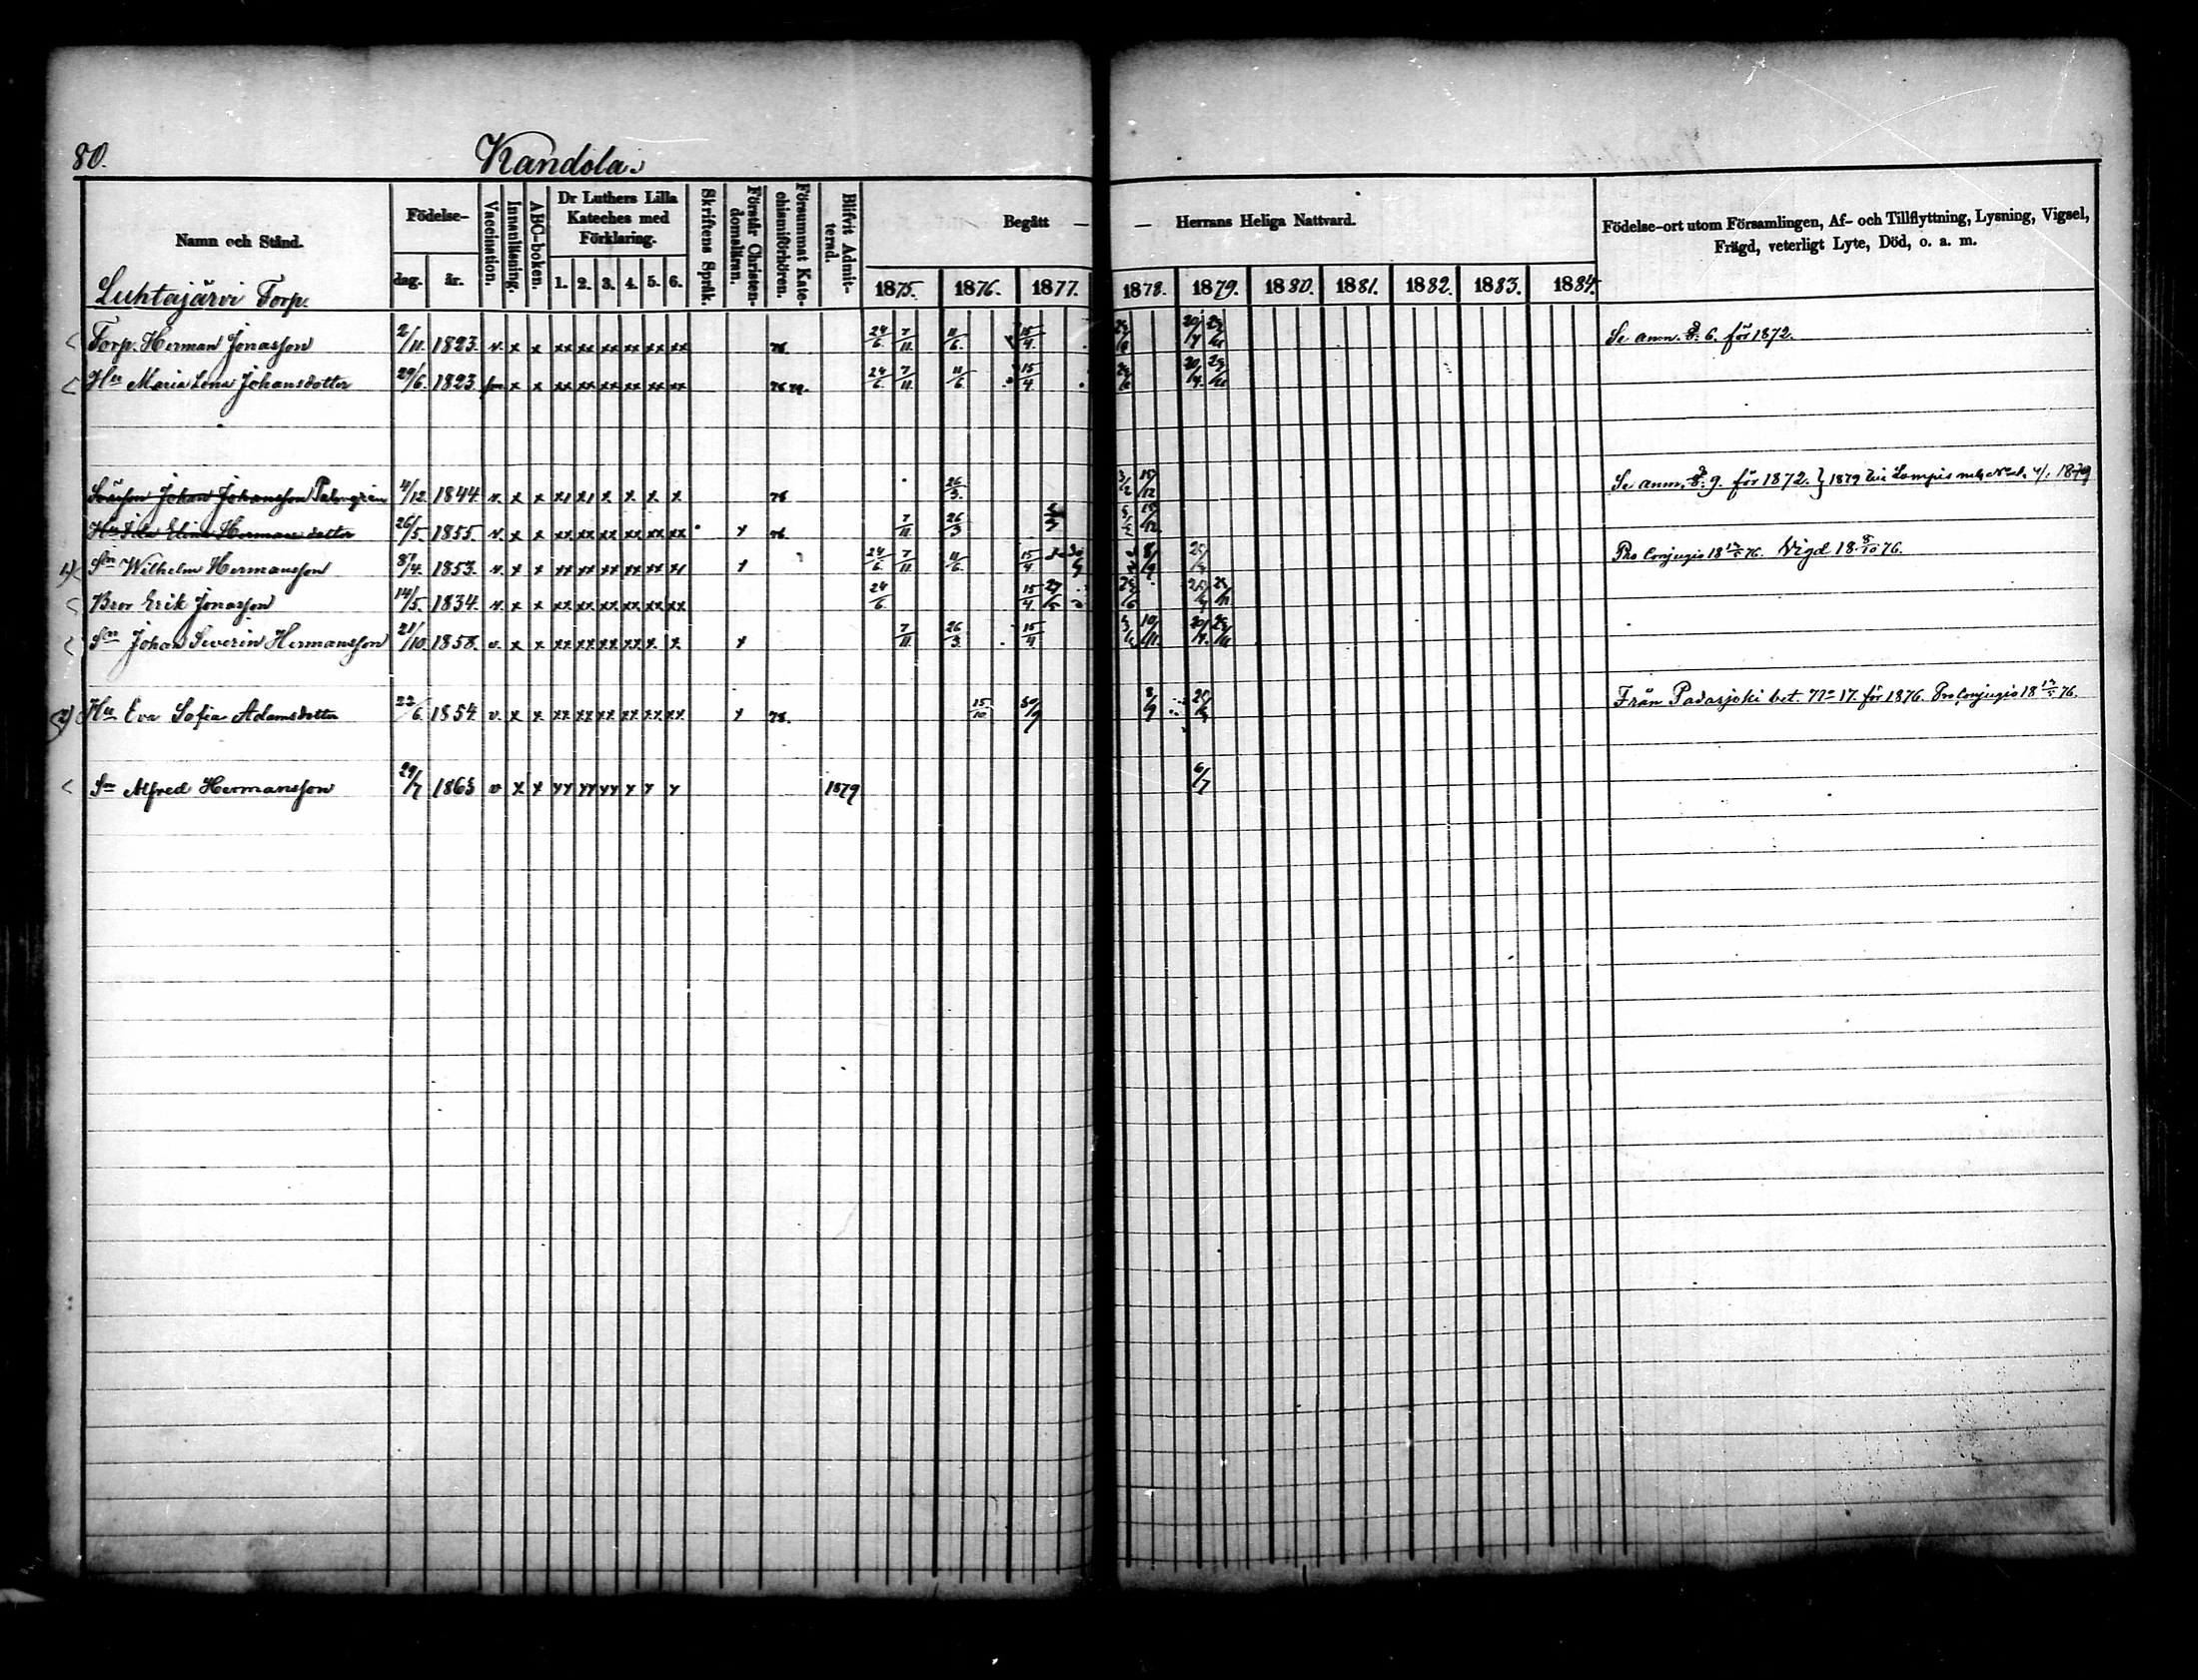 80.
Kandola.
Namn och Stånd.
Födelse-
dag. år.
Vaccination.
Innanläsning.
ABC-boken.
Dr Luthers Lilla
Kateches med
Förklaring.
1. 2. 3. 4. 5. 6.
Skriftens Språk.
Förstår Christen-
domsläran.
Försummat Kate-
chismiförhören.
Blifvit Admit-
terad.
Begått — — Herrans Heliga Nattvard.
1875. 1876. 1877. 1878. 1879. 1880. 1881. 1882. 1883. 1884.
Födelse-ort utom Församlingen, Af- och Tillflyttning, Lysning, Vigsel,
Frägd, veterligt Lyte, Död, o. a. m.
Luhtajärvi Torp.
Torp. Herman Jonasson 2/11. 1823. v. x x xx xx xx xx xx xx 76. 24/6. 7/11. 11/6. 15/4. Se anm. 6. för 1872.
Hu Maria Lena Johansdotter 29/6. 1823 x x xx xx xx xx xx xx 24/6 7/11. 11/6 15/4.
Johan Johansson Palmgrén 4/12. 1844 v. x x x x x x 76 26/3. 15/12 Se anm. 9. för 1872. } 1879
Hermansdotter 26/5. 1855. v. x x xx xx xx xx xx xx x 76. 7/11 26/3
1) Sn Wilhelm Hermansson 8/4. 1853. v. x x xx xx xx xx xx x 24/6 7/11. 11/6. 15/4 Pro Conjugio 18 76. Vigd 18 8/10 76.
Bror Erik Jonasson 14/5. 1834. v. x x xx xx xx xx xx xx 24/6. 15/4.
Sn Johan Severin Hermansson 21/10. 1858. v. x x xx xx xx xx x. x x 7/11. 26/3. 15/4
2) Hu Eva Sofia Adamsdotter 22/6. 1854. v. x x xx xx xx xx xx xx x 78. 15/10 30/9 Från Padasjoki bet. No 17. för 1876. Pro Conjugio 18 76.
Sn Alfred Hermansson 29/7 1863 v x x xx xx xx x x x 1879 6/7